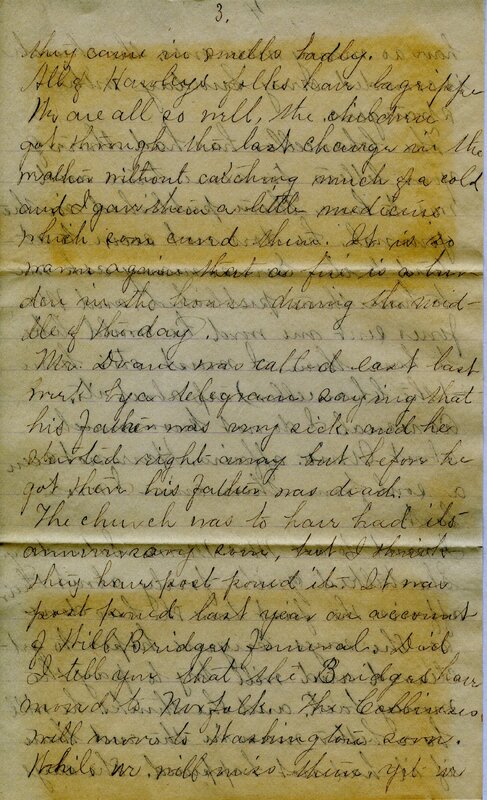 3.
they came in smells badly.
All of Hawleys folks have lagrippe
We are all so well, the children
got through the last change in the
weather without catching much of a cold
and I gave them a little medicine
which soon cured them. It is so
warm again that a fire is a bur
den in the house during the mid
dle of the day.
Mr. Doane was called east last
week by a telegram saying that
his father was very sick and he
started right away but before he
got there his father was dead.
The church was to have had its
anniversary soon, but I think
they have post poned it. It was
post poned last year on account
of Will Bridges funeral. Did
I tell you that the Bridges have
moved to Norfolk. The
will move to Washington soon.
While we will miss them, yet we